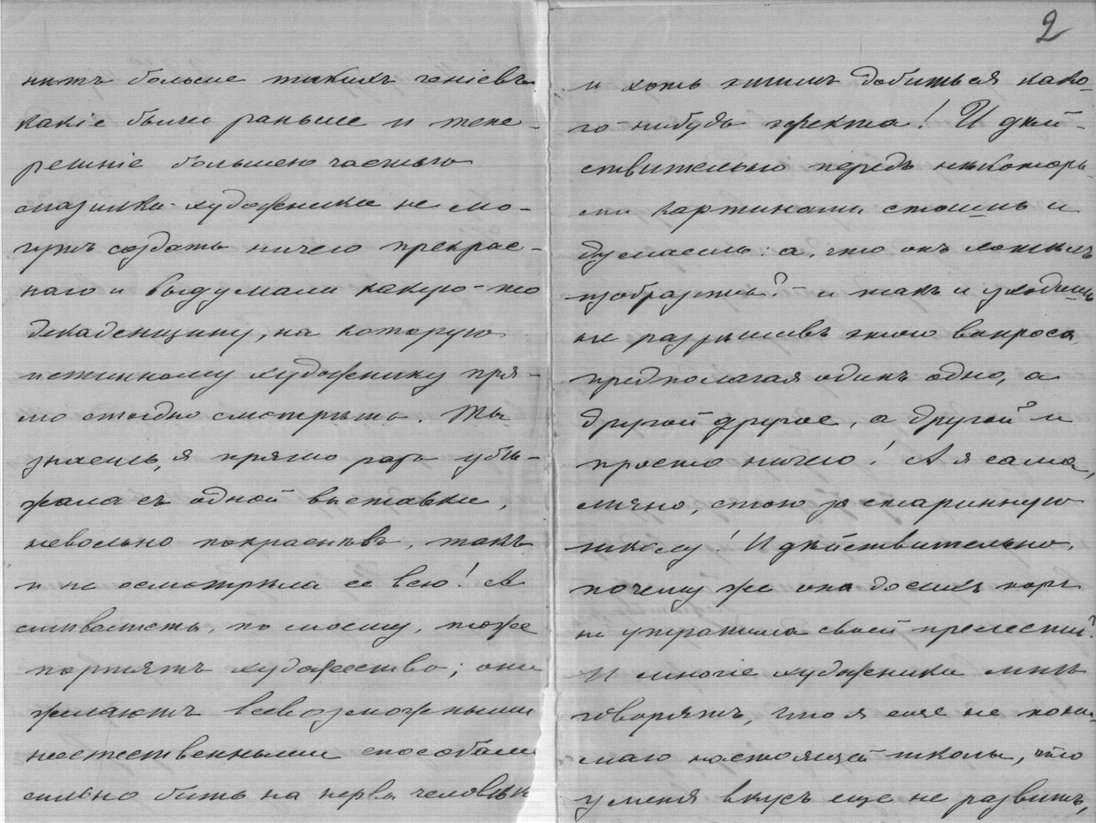 нѣтъ больше такихъ геніевъ
какіе были раньше и тепе-
решніе большею частью
мазилки-художники не мо-
гутъ создать ничего прекрас-
наго и выдумали какую-то
декаденщину, на которую
истинному художнику пря-
мо стыдно смотрѣть. Ты
знаешь, я прямо разъ убѣ-
жала съ одной выставки,
невольно покраснѣвъ, такъ
и не осмотрѣла ее всю! А
символисты, по моему, тоже
портятъ художество; они
желаютъ всевозможными
неестественными способами
сильно бить на нервы человѣка
2
и хоть этимъ добиться како-
го-нибудь эфекта! И дѣй-
ствительно передъ нѣкоторы-
ми картинами стоишь и
думаешь: а, что онъ хотѣлъ
изобразить? - и такъ и уходишь
не разрѣшивъ этого вопроса,
предполагая одинъ одно, а
другой другое, а другой и
просто ничего! А я сама,
лично, стою за старинную
школу! И дѣйствительно,
почему же она до сихъ поръ
не утратила своей прелести?
И многіе художники мнѣ
говорятъ, что я еще не пони-
маю настоящей школы, что
у меня вкусъ еще не развитъ,